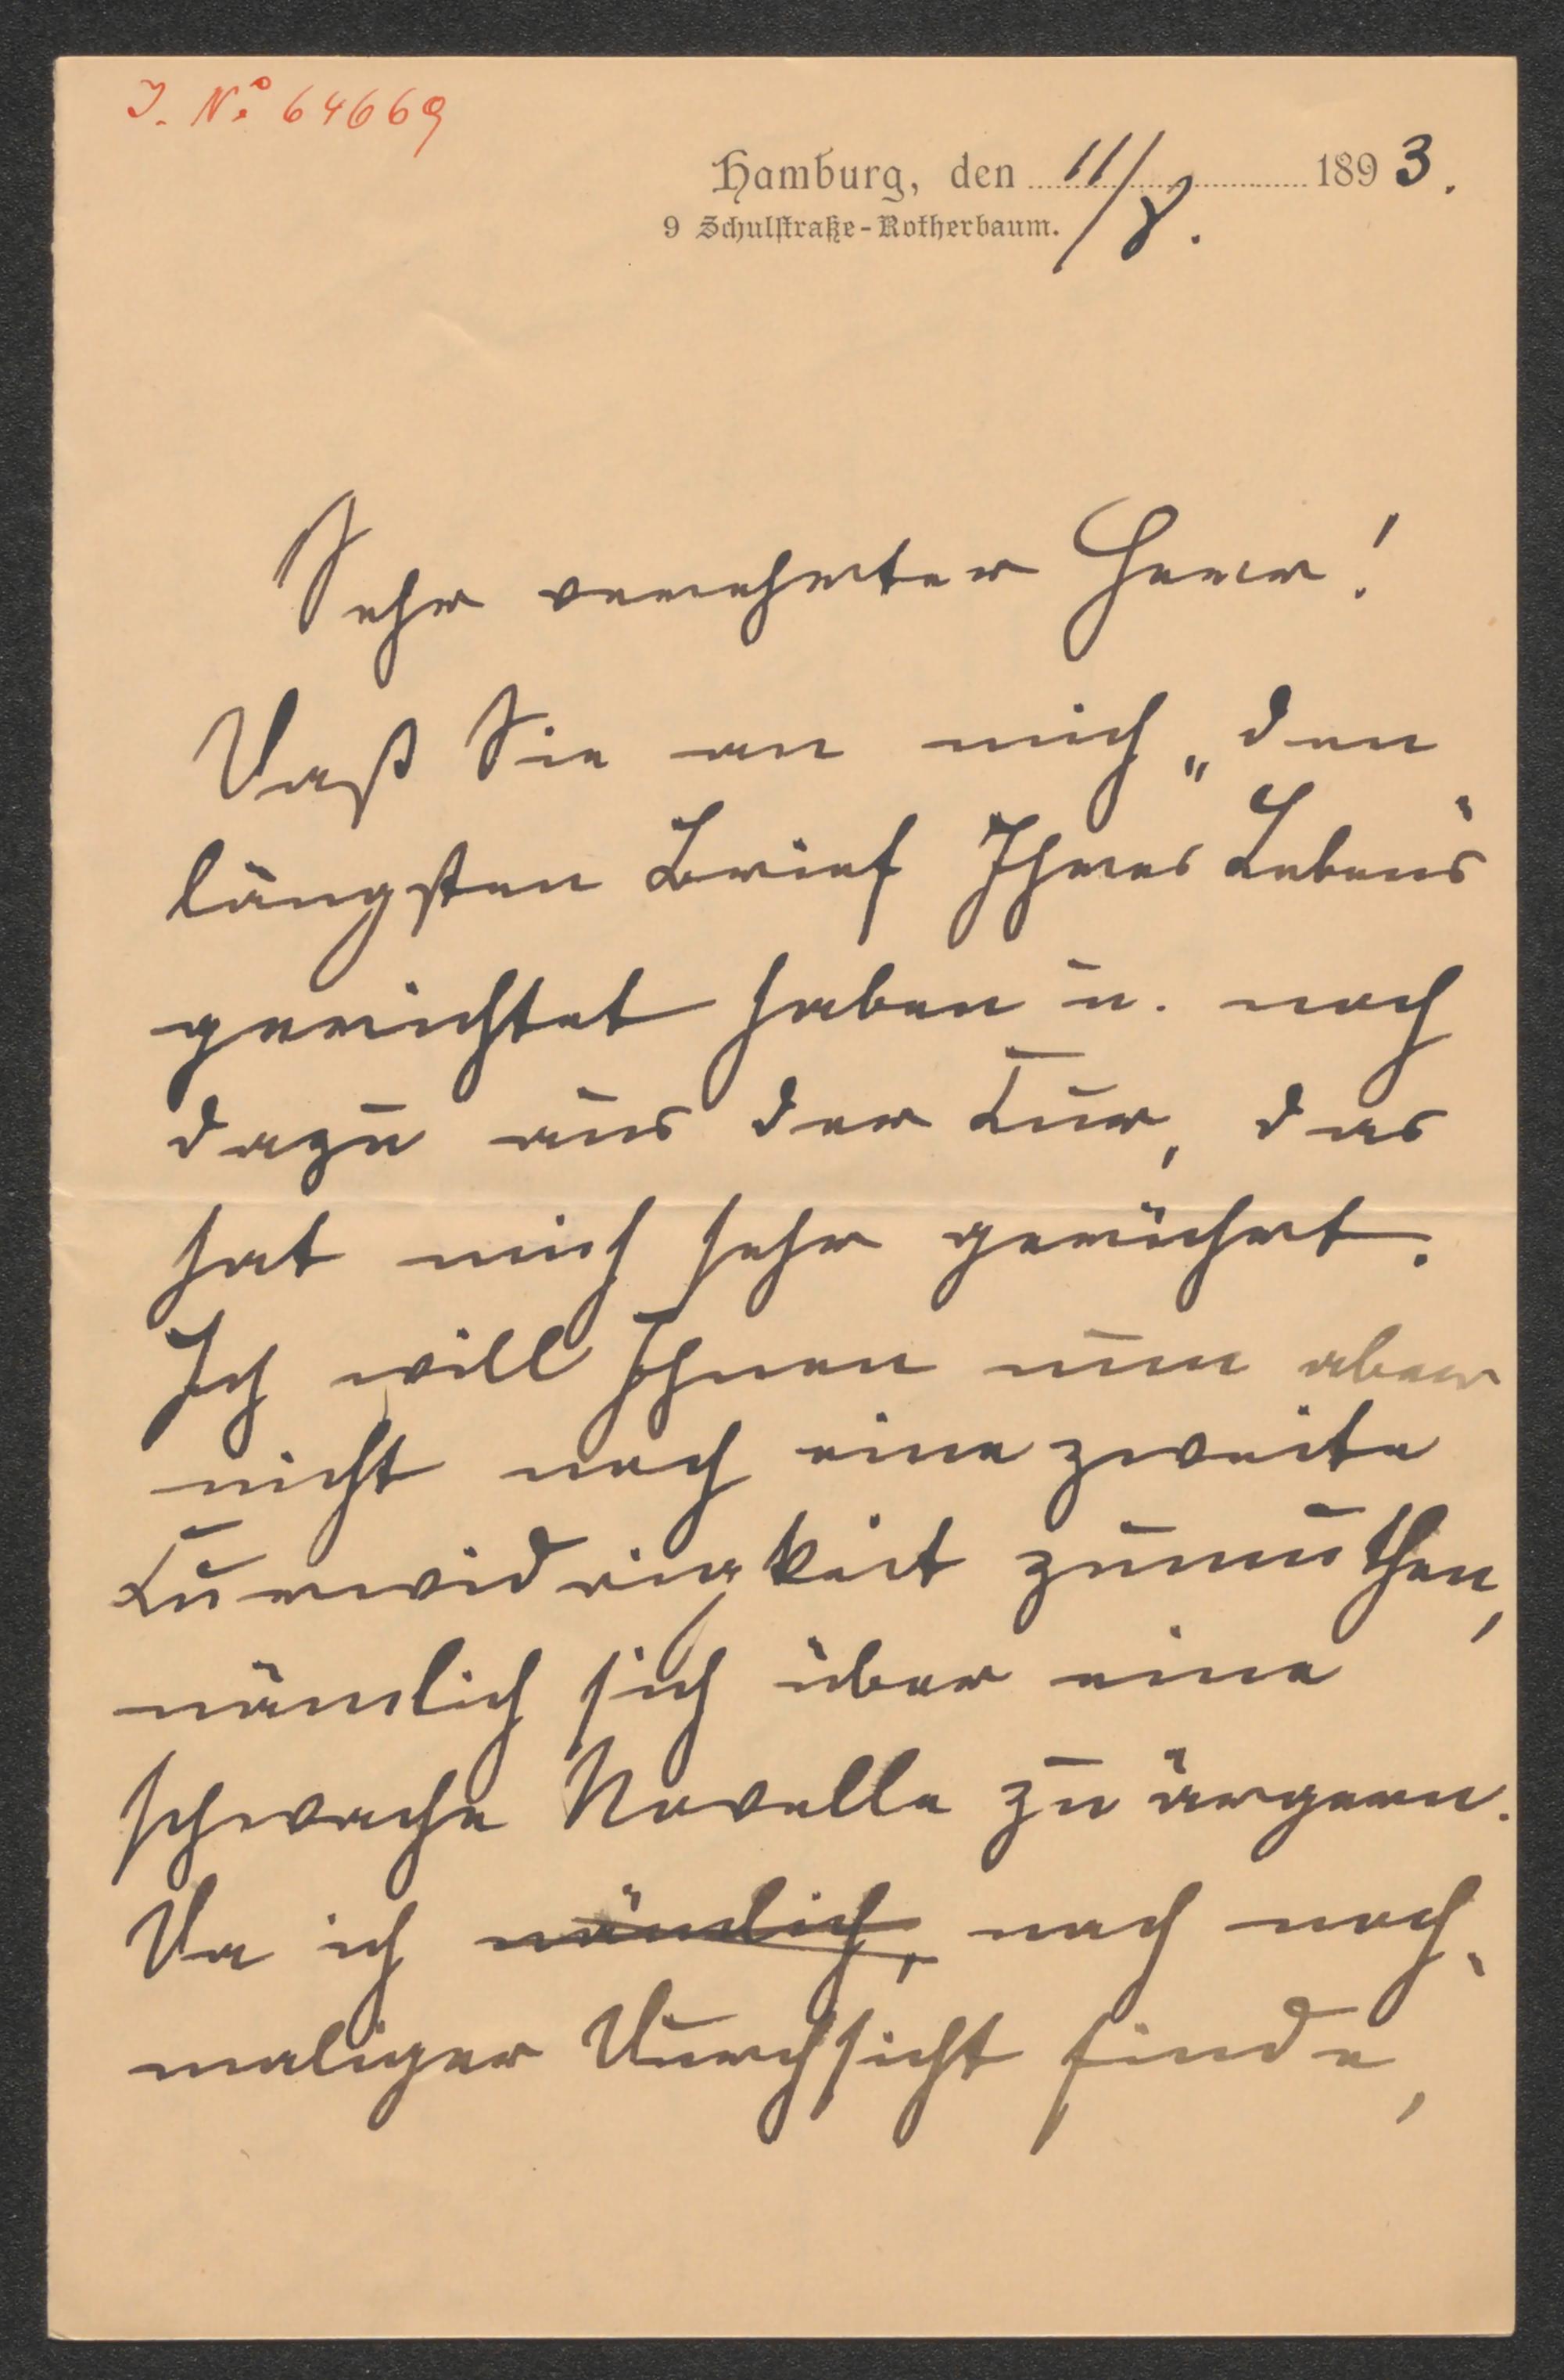 J. No 64669
Hamburg, den 11/8. 1893.
9 Schulstraße-Rotherbaum.
Sehr verehrter Herr!
Daß Sie an mich „den
längsten Brief Ihres Lebens“
gerichtet haben u. noch
dazu aus der Kur, das
hat mich sehr gerührt.
Ich will Ihnen nun aber
nicht noch eine zweite
Kurwidrigkeit zumuthen,
nämlich sich über eine
schwache Novelle zu ärgern.
Da ich nämlich, nach noch-
maliger Durchsicht finde,